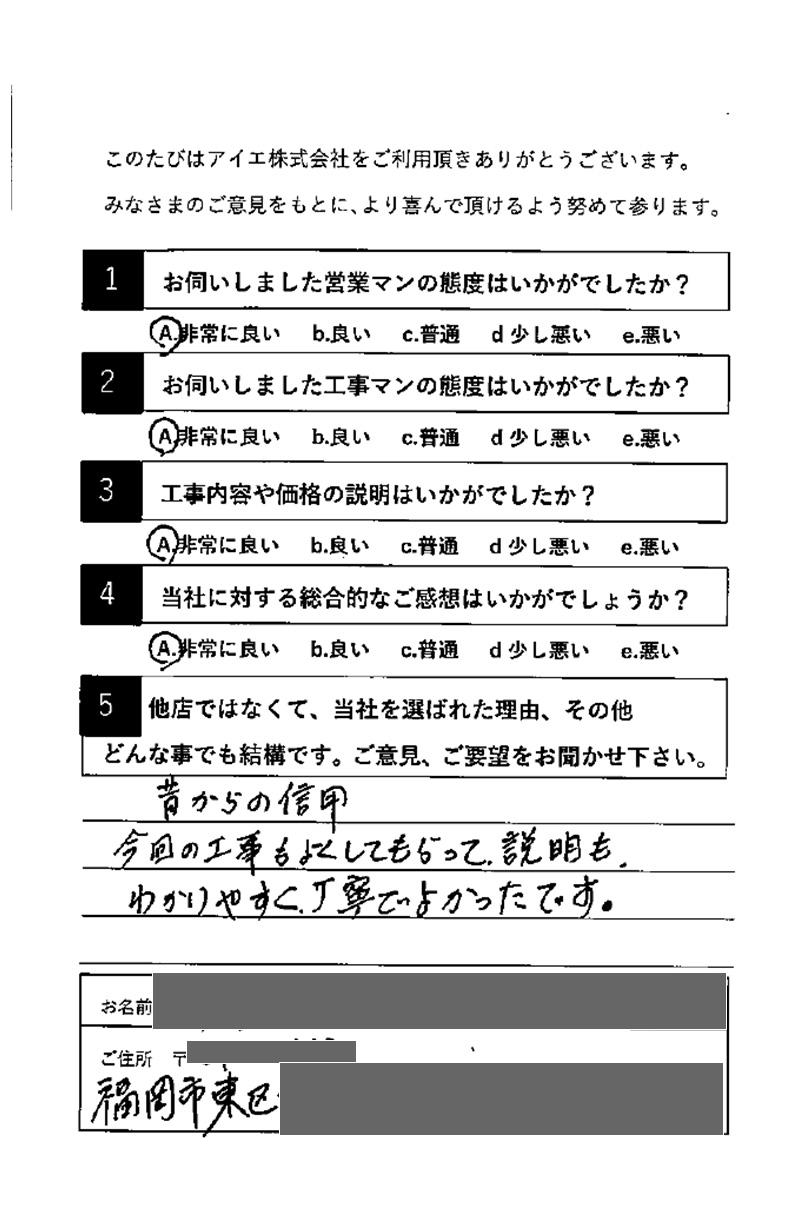 このたびはアイエ株式会社をご利用頂きありがとうございます。
みなさまのご意見をもとに、より喜んで頂けるよう努めて参ります。
1 お伺いしました営業マンの態度はいかがでしたか？
A.非常に良い b.良い c.普通 d 少し悪い e.悪い
2 お伺いしました工事マンの態度はいかがでしたか？
A.非常に良い b.良い c.普通 d 少し悪い e.悪い
3 工事内容や価格の説明はいかがでしたか？
A.非常に良い b.良い c.普通 d 少し悪い e.悪い
4 当社に対する総合的なご感想はいかがでしょうか？
A.非常に良い b.良い c.普通 d 少し悪い e.悪い
5 他店ではなくて、当社を選ばれた理由、その他
どんな事でも結構です。ご意見、ご要望をお聞かせ下さい。
昔からの信用
今回の工事もよくしてもらって、説明も、
わかりやすく、丁寧でよかったです。
お名前
ご住所 〒
福岡市東区